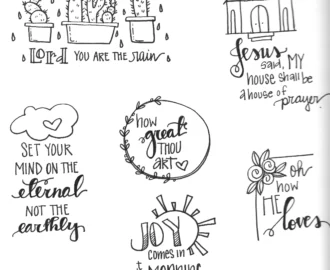 Lord YOU ARE THE rain
Jesus
said, MY
house shall be
a house of
prayer.
SET YOUR
MIND ON THE
eternal
NOT THE
earthly
how
great
THOU
art
oh
how
HE
loves
JOY
comes in
MORNING